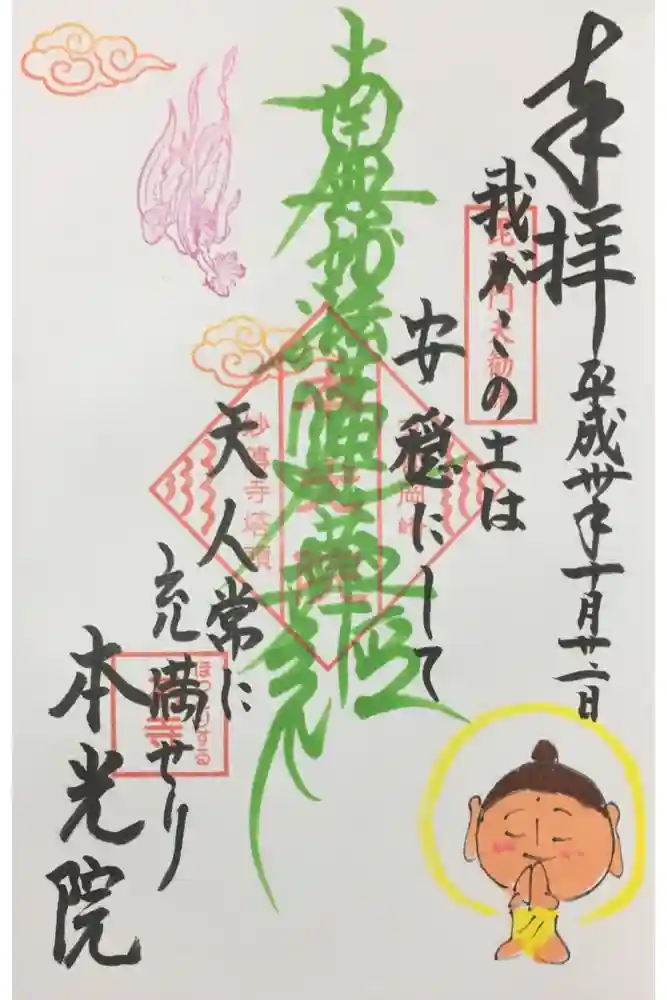 奉拝
平成卅年十月廿一日
我がこの土は
安穏にして
南無妙法蓮華経
天人常に
充満せり
本光院
妙頂寺塔頭